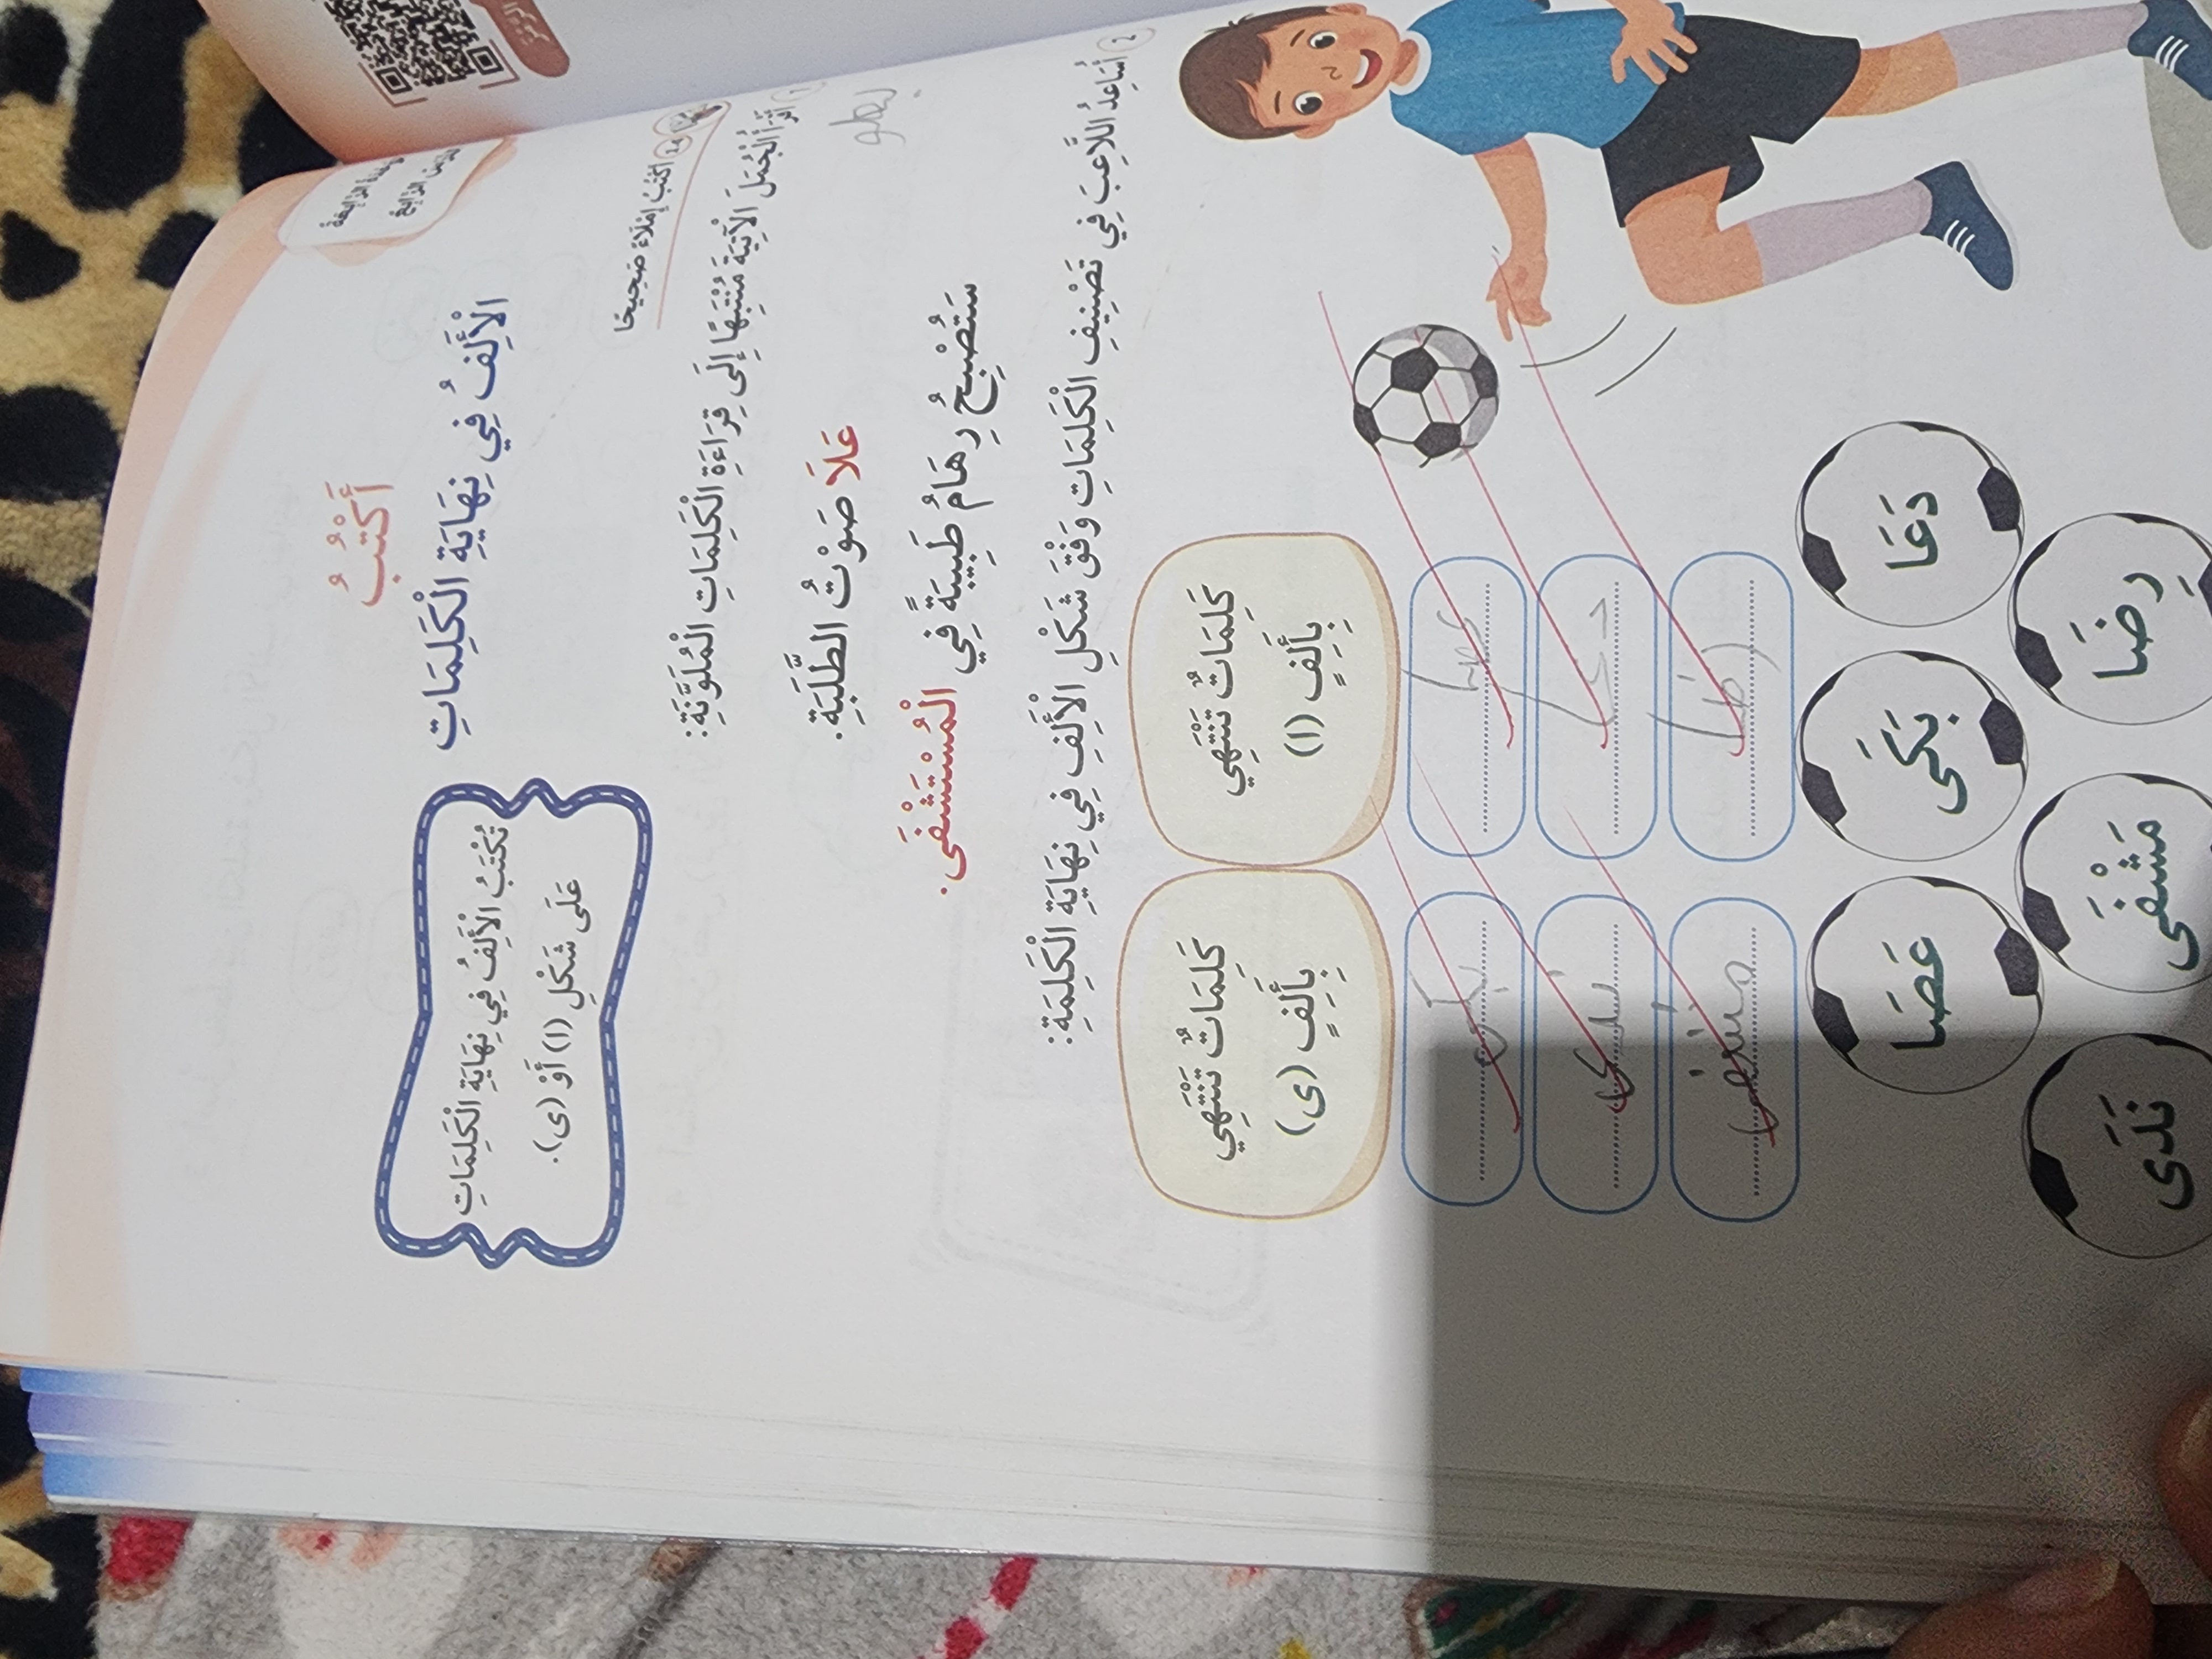 أَكْتُبُ
الْأَلِفُ فِي نِهَايَةِ الْكَلِمَاتِ
تُكْتَبُ الْأَلِفُ فِي نِهَايَةِ الْكَلِمَاتِ
عَلَى شَكْلِ (ا) أَوْ (ى).
أَكْتُبُ إِمْلَاءً صَحِيحًا
1 أَقْرَأُ الْجُمَلَ الْآتِيَةَ مُنْتَبِهًا إِلَى قِرَاءَةِ الْكَلِمَاتِ الْمُلَوَّنَةِ:
عَلَا صَوْتُ الطَّلَبَةِ.
سَتُصْبِحُ رِهَامُ طَبِيبَةً فِي الْمُسْتَشْفَى.
2 أُسَاعِدُ اللَّاعِبَ فِي تَصْنِيفِ الْكَلِمَاتِ وَفْقَ شَكْلِ الْأَلِفِ فِي نِهَايَةِ الْكَلِمَةِ:
كَلِمَاتٌ تَنْتَهِي
بِأَلِفٍ (ا)
كَلِمَاتٌ تَنْتَهِي
بِأَلِفٍ (ى)
عصا
بكى
دعا
ندى
رضا
مشفى
دَعَا
بَكَى
عَصَا
رِضَا
مَشْفَى
نَدَى